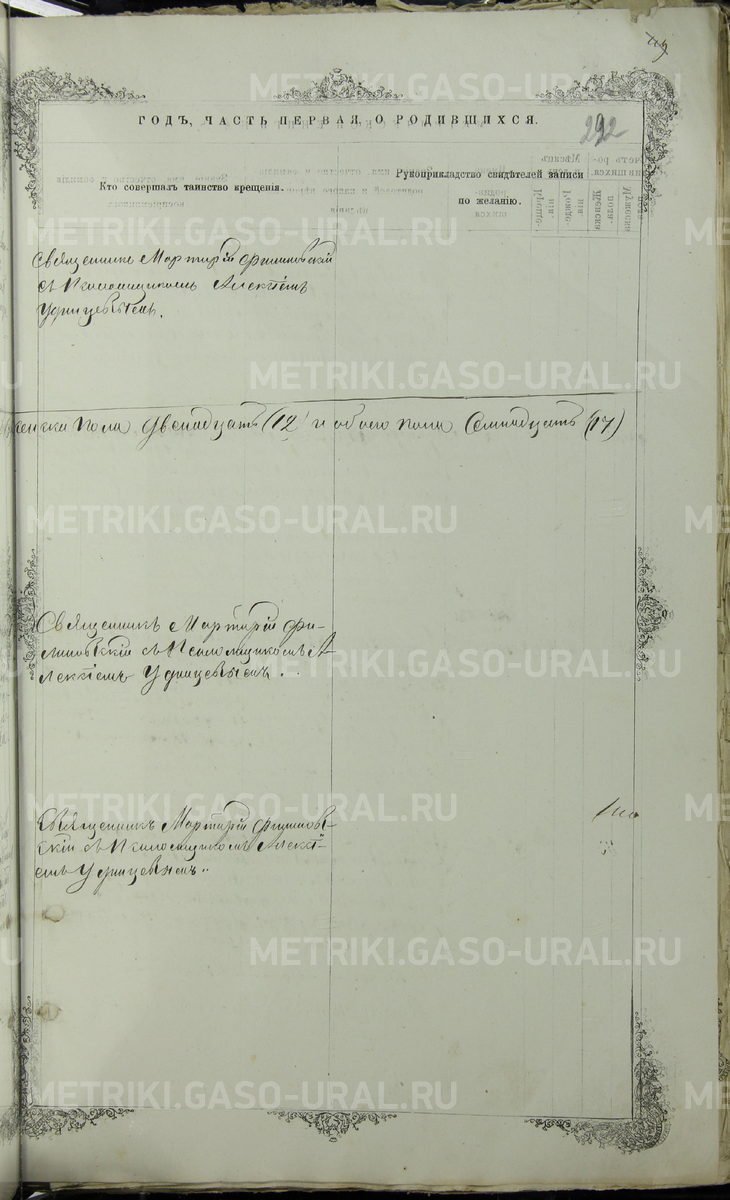 292
ГОДЪ, ЧАСТЬ ПЕРВАЯ, О РОДИВШИХСЯ.
Кто совершалъ таинство крещенія.
Рукоприкладство свидѣтелей записи
по желанію.
Священникъ Мартирій Филиповскій
съ Псаломщикомъ Алексіемъ
Удинцевымъ.
женска пола Двенадцать (12) и обоего пола Семнадцать (17)
Священникъ Мартирій Фи-
липовскій съ Псаломщикомъ А-
лексіемъ Удинцевымъ.
Священникъ Мартирій Филипов-
скій съ Псаломщикомъ Алексі-
емъ Удинцевымъ.
METRIKI.GASO-URAL.RU